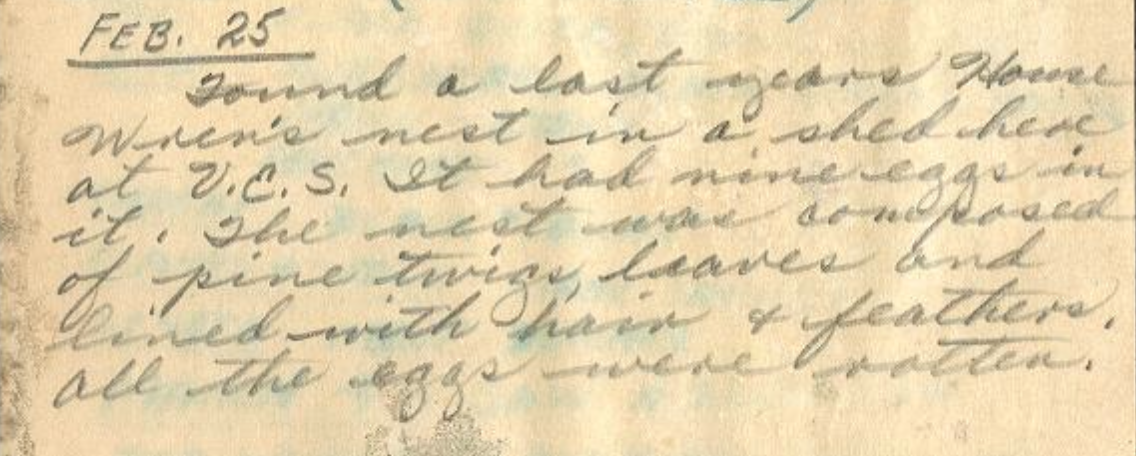 FEB. 25
Found a last years House
Wren's nest in a shed here
at V.E.S. It had nine eggs in
it. The nest was composed
of pine twigs, leaves and
lined with hair & feathers.
all the eggs were rotten.